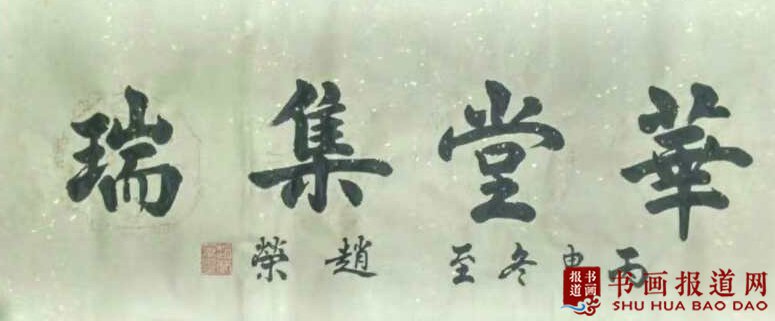 華堂集瑞
丙申冬至 趙榮
书画报道
书画报道网
SHU HUA BAO DAO